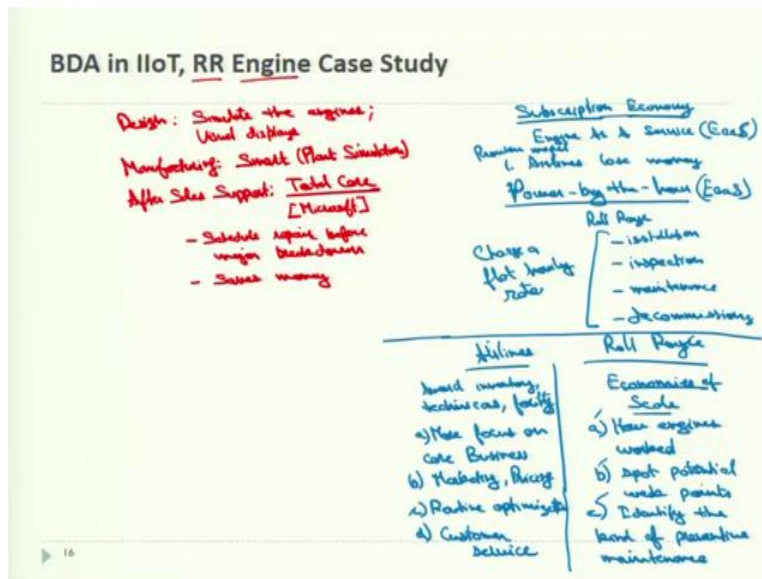 BDA in IIoT, RR Engine Case Study
Design: Simulate the engines;
Visual displays
Manufacturing: Smart (Plant Simulation)
After Sales Support: Total Care
[Microsoft]
- Schedule repair before
major breakdowns
- Saves money
Subscription Economy
Engine As A Service (EaaS)
Previous model
1. Airlines lose money
Power-by-the-hour (EaaS)
Roll Royce
Charge a
flat hourly
rate
- installation
- inspection
- maintenance
- decommissions
Airlines
Avoid inventory,
technicians, facility
a) More focus on
core Business
b) Marketing, Pricing
c) Routine optimization
d) Customer
service
Roll Royce
Economies of
Scale
a) How engines
worked
b) spot potential
weak points
c) Identify the
kind of preventive
maintenance
16